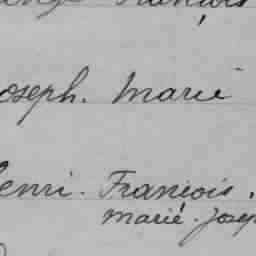 François
Joseph. Marie
Henri. François.
Marie. Josep